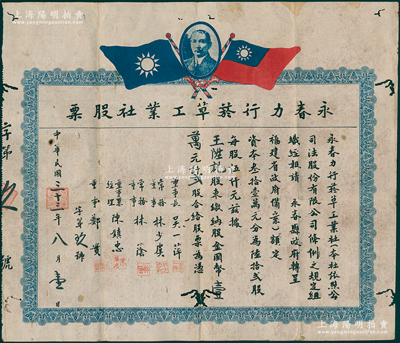 上海陽明拍賣
永春力行菸草工業社股票
永春力行菸草工業社(本社依照公
司法股份有限公司條例之規定組
織經報請 永春縣政府轉呈
福建省政府備案)額定
資本叁拾萬元分為陸拾股
每股伍仟元茲據
王陞 股東繳納股金國幣壹
萬元計貳股合給股票為憑
董事長 吳一萍
常務董事 林少虞
常務董事 林蔭
董事兼經理 陳鎮忠
董事 鄭貴
字第 玖 號
中華民國三十三年八月壹日
字第 玖 號